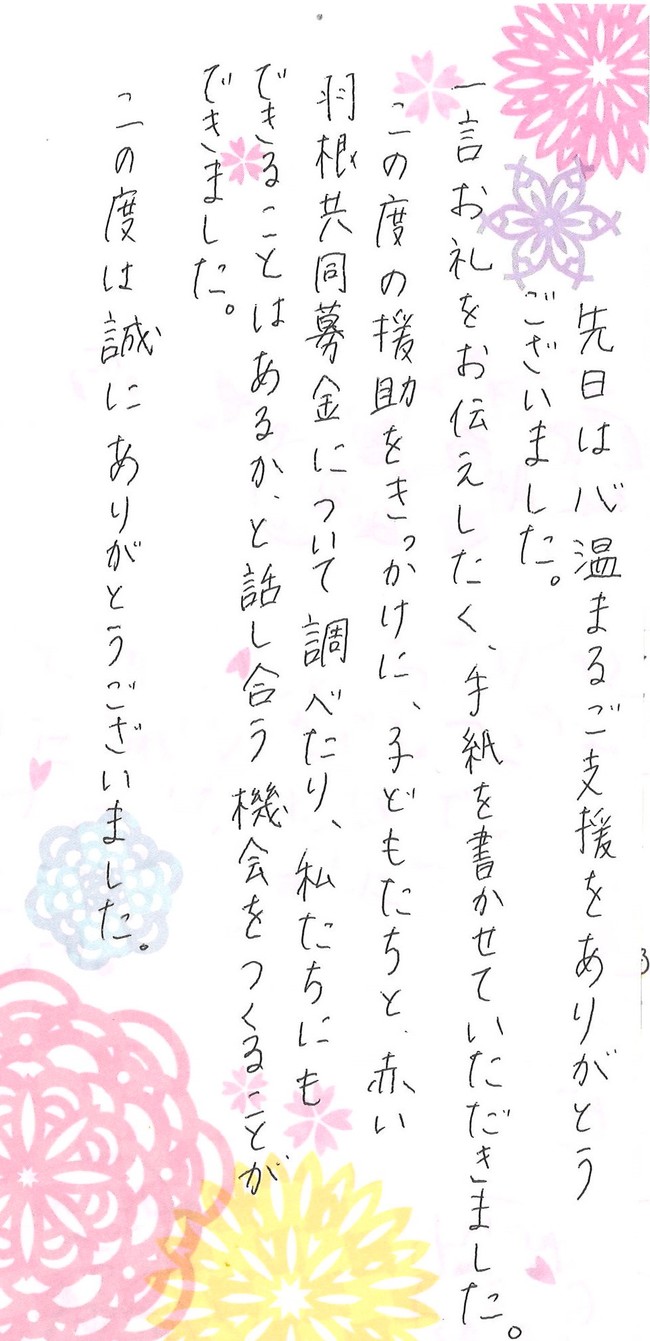 先日は心温まるご支援をありがとう
ございました。
一言お礼をお伝えしたく、手紙を書かせていただきました。
この度の援助をきっかけに、子どもたちと、赤い
羽根共同募金について調べたり、私たちにも
できることはあるか、と話し合う機会をつくることが
できました。
この度は誠にありがとうございました。